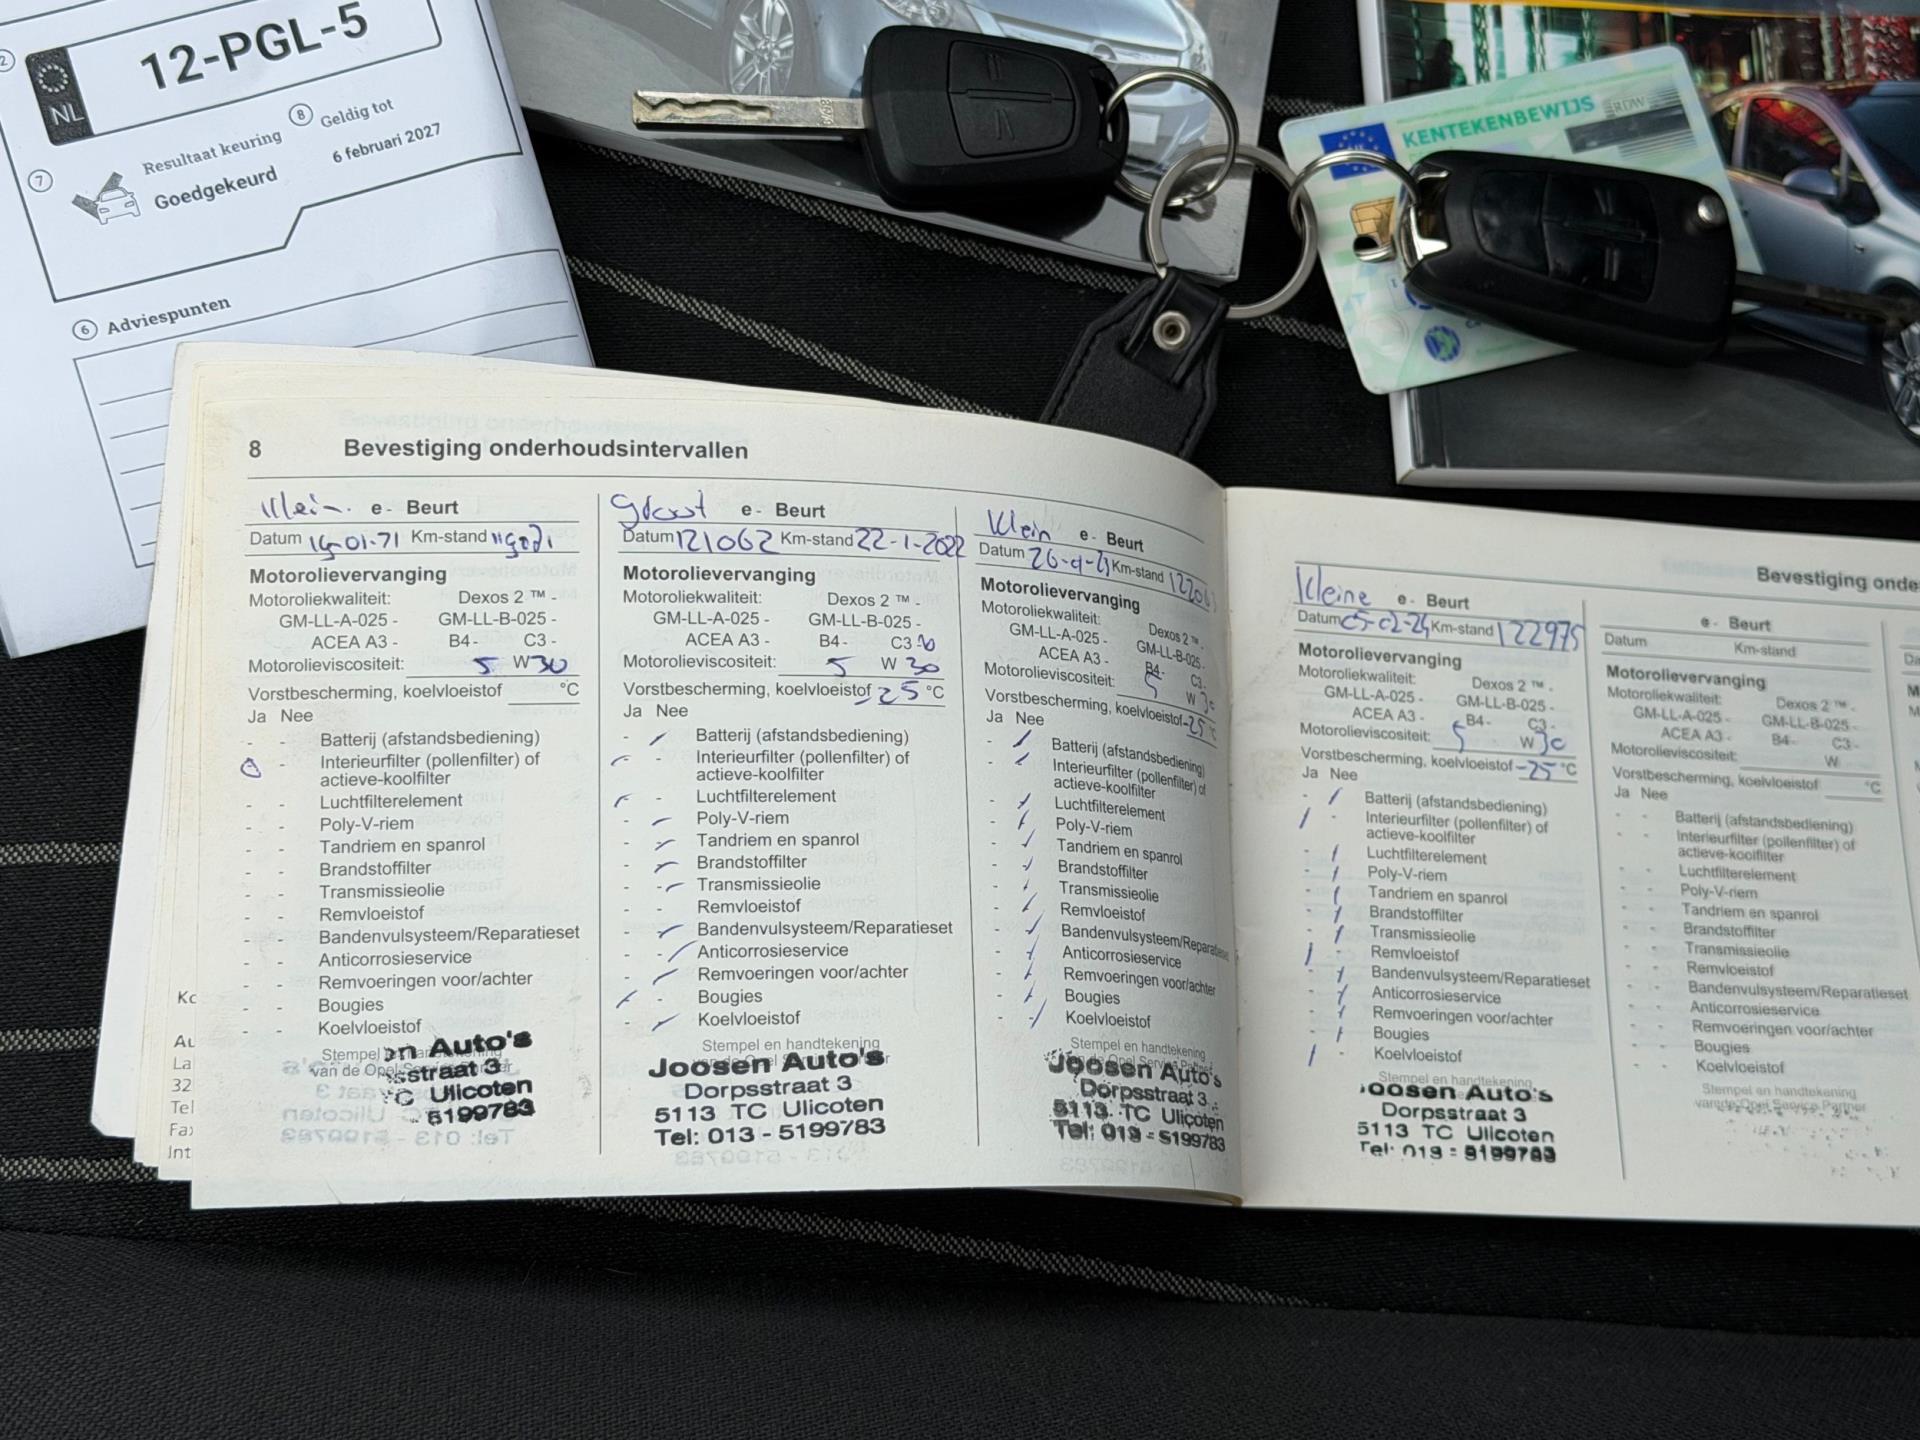 12-PGL-5
NL
8 Geldig tot
Resultaat keuring
6 februari 2027
7
Goedgekeurd
6 Adviespunten
KENTEKENBEWIJS
RDW
8 Bevestiging onderhoudsintervallen
Klein e - Beurt
Datum Km-stand
Motorolievervanging
Motoroliekwaliteit: Dexos 2 ™ -
GM-LL-A-025 - GM-LL-B-025 -
ACEA A3 - B4- C3 -
Motorolieviscositeit: 5 W 30
Vorstbescherming, koelvloeistof °C
Ja Nee
- - Batterij (afstandsbediening)
- Interieurfilter (pollenfilter) of
actieve-koolfilter
- - Luchtfilterelement
- - Poly-V-riem
- - Tandriem en spanrol
- - Brandstoffilter
- - Transmissieolie
- - Remvloeistof
- - Bandenvulsysteem/Reparatieset
- - Anticorrosieservice
- - Remvoeringen voor/achter
- - Bougies
- - Koelvloeistof
Stempel en handtekening
van de Opel Service Partner
en Auto's
sstraat 3
C Ulicoten
5199783
Groot e - Beurt
Datum 121062 Km-stand 22-1-2022
Motorolievervanging
Motoroliekwaliteit: Dexos 2 ™ -
GM-LL-A-025 - GM-LL-B-025 -
ACEA A3 - B4- C3
Motorolieviscositeit: 5 W 30
Vorstbescherming, koelvloeistof -25 °C
Ja Nee
Batterij (afstandsbediening)
Interieurfilter (pollenfilter) of
actieve-koolfilter
Luchtfilterelement
Poly-V-riem
Tandriem en spanrol
Brandstoffilter
Transmissieolie
Remvloeistof
Bandenvulsysteem/Reparatieset
Anticorrosieservice
Remvoeringen voor/achter
Bougies
Koelvloeistof
Stempel en handtekening
van de Opel Service Partner
Joosen Auto's
Dorpsstraat 3
5113 TC Ulicoten
Tel: 013 - 5199783
Klein e - Beurt
Datum Km-stand
Motorolievervanging
Motoroliekwaliteit: Dexos 2 ™ -
GM-LL-A-025 - GM-LL-B-025 -
ACEA A3 - B4- C3-
Motorolieviscositeit: 5 W 30
Vorstbescherming, koelvloeistof -25 °C
Ja Nee
Batterij (afstandsbediening)
Interieurfilter (pollenfilter) of
actieve-koolfilter
Luchtfilterelement
Poly-V-riem
Tandriem en spanrol
Brandstoffilter
Transmissieolie
Remvloeistof
Bandenvulsysteem/Reparatieset
Anticorrosieservice
Remvoeringen voor/achter
Bougies
Koelvloeistof
Stempel en handtekening
van de Opel Service Partner
Joosen Auto's
Dorpsstraat 3
5113 TC Ulicoten
Tel: 013 - 5199783
Bevestiging onde
Kleine e - Beurt
Datum 05-02-24 Km-stand 122975
Motorolievervanging
Motoroliekwaliteit: Dexos 2 ™ -
GM-LL-A-025 - GM-LL-B-025 -
ACEA A3 - B4- C3-
Motorolieviscositeit: 5 W 30
Vorstbescherming, koelvloeistof -25 °C
Ja Nee
Batterij (afstandsbediening)
Interieurfilter (pollenfilter) of
actieve-koolfilter
Luchtfilterelement
Poly-V-riem
Tandriem en spanrol
Brandstoffilter
Transmissieolie
Remvloeistof
Bandenvulsysteem/Reparatieset
Anticorrosieservice
Remvoeringen voor/achter
Bougies
Koelvloeistof
Stempel en handtekening
Joosen Auto's
Dorpsstraat 3
5113 TC Ulicoten
Tel: 013 - 5199783
e - Beurt
Datum Km-stand
Motorolievervanging
Motoroliekwaliteit: Dexos 2 ™ -
GM-LL-A-025 - GM-LL-B-025 -
ACEA A3 - B4- C3-
Motorolieviscositeit: W
Vorstbescherming, koelvloeistof °C
Ja Nee
- - Batterij (afstandsbediening)
- - Interieurfilter (pollenfilter) of
actieve-koolfilter
- - Luchtfilterelement
- - Poly-V-riem
- - Tandriem en spanrol
- - Brandstoffilter
- - Transmissieolie
- - Remvloeistof
- - Bandenvulsysteem/Reparatieset
- - Anticorrosieservice
- - Remvoeringen voor/achter
- - Bougies
- - Koelvloeistof
Stempel en handtekening
van de Opel Service Partner
Kc
Au
La
32
Tel
Fax
Int